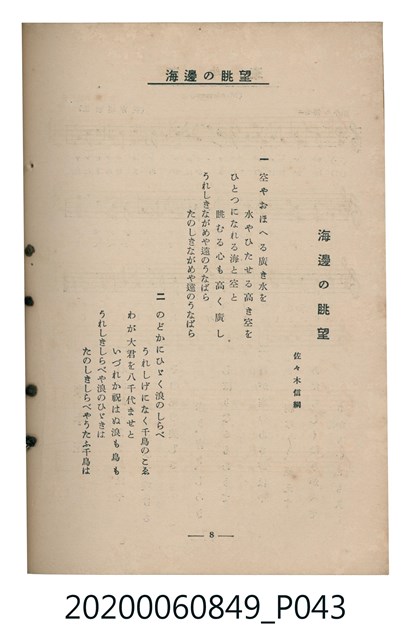 海邊の眺望
海邊の眺望
佐々木信綱
一 空やおほへる廣き水を
水やひたせる高き空を
ひとつになれる海と空と
眺むる心も高く廣し
うれしきながめや遠のうなばら
たのしきながめや遠のうなばら
二 のどかにひゞく浪のしらべ
うれしげになく千鳥のこゑ
わが大君を八千代ませと
いづれか祝はぬ浪も鳥も
うれしきしらべや浪のひゞきは
たのしきしらべやうたふ千鳥は
— 8 —
20200060849_P043